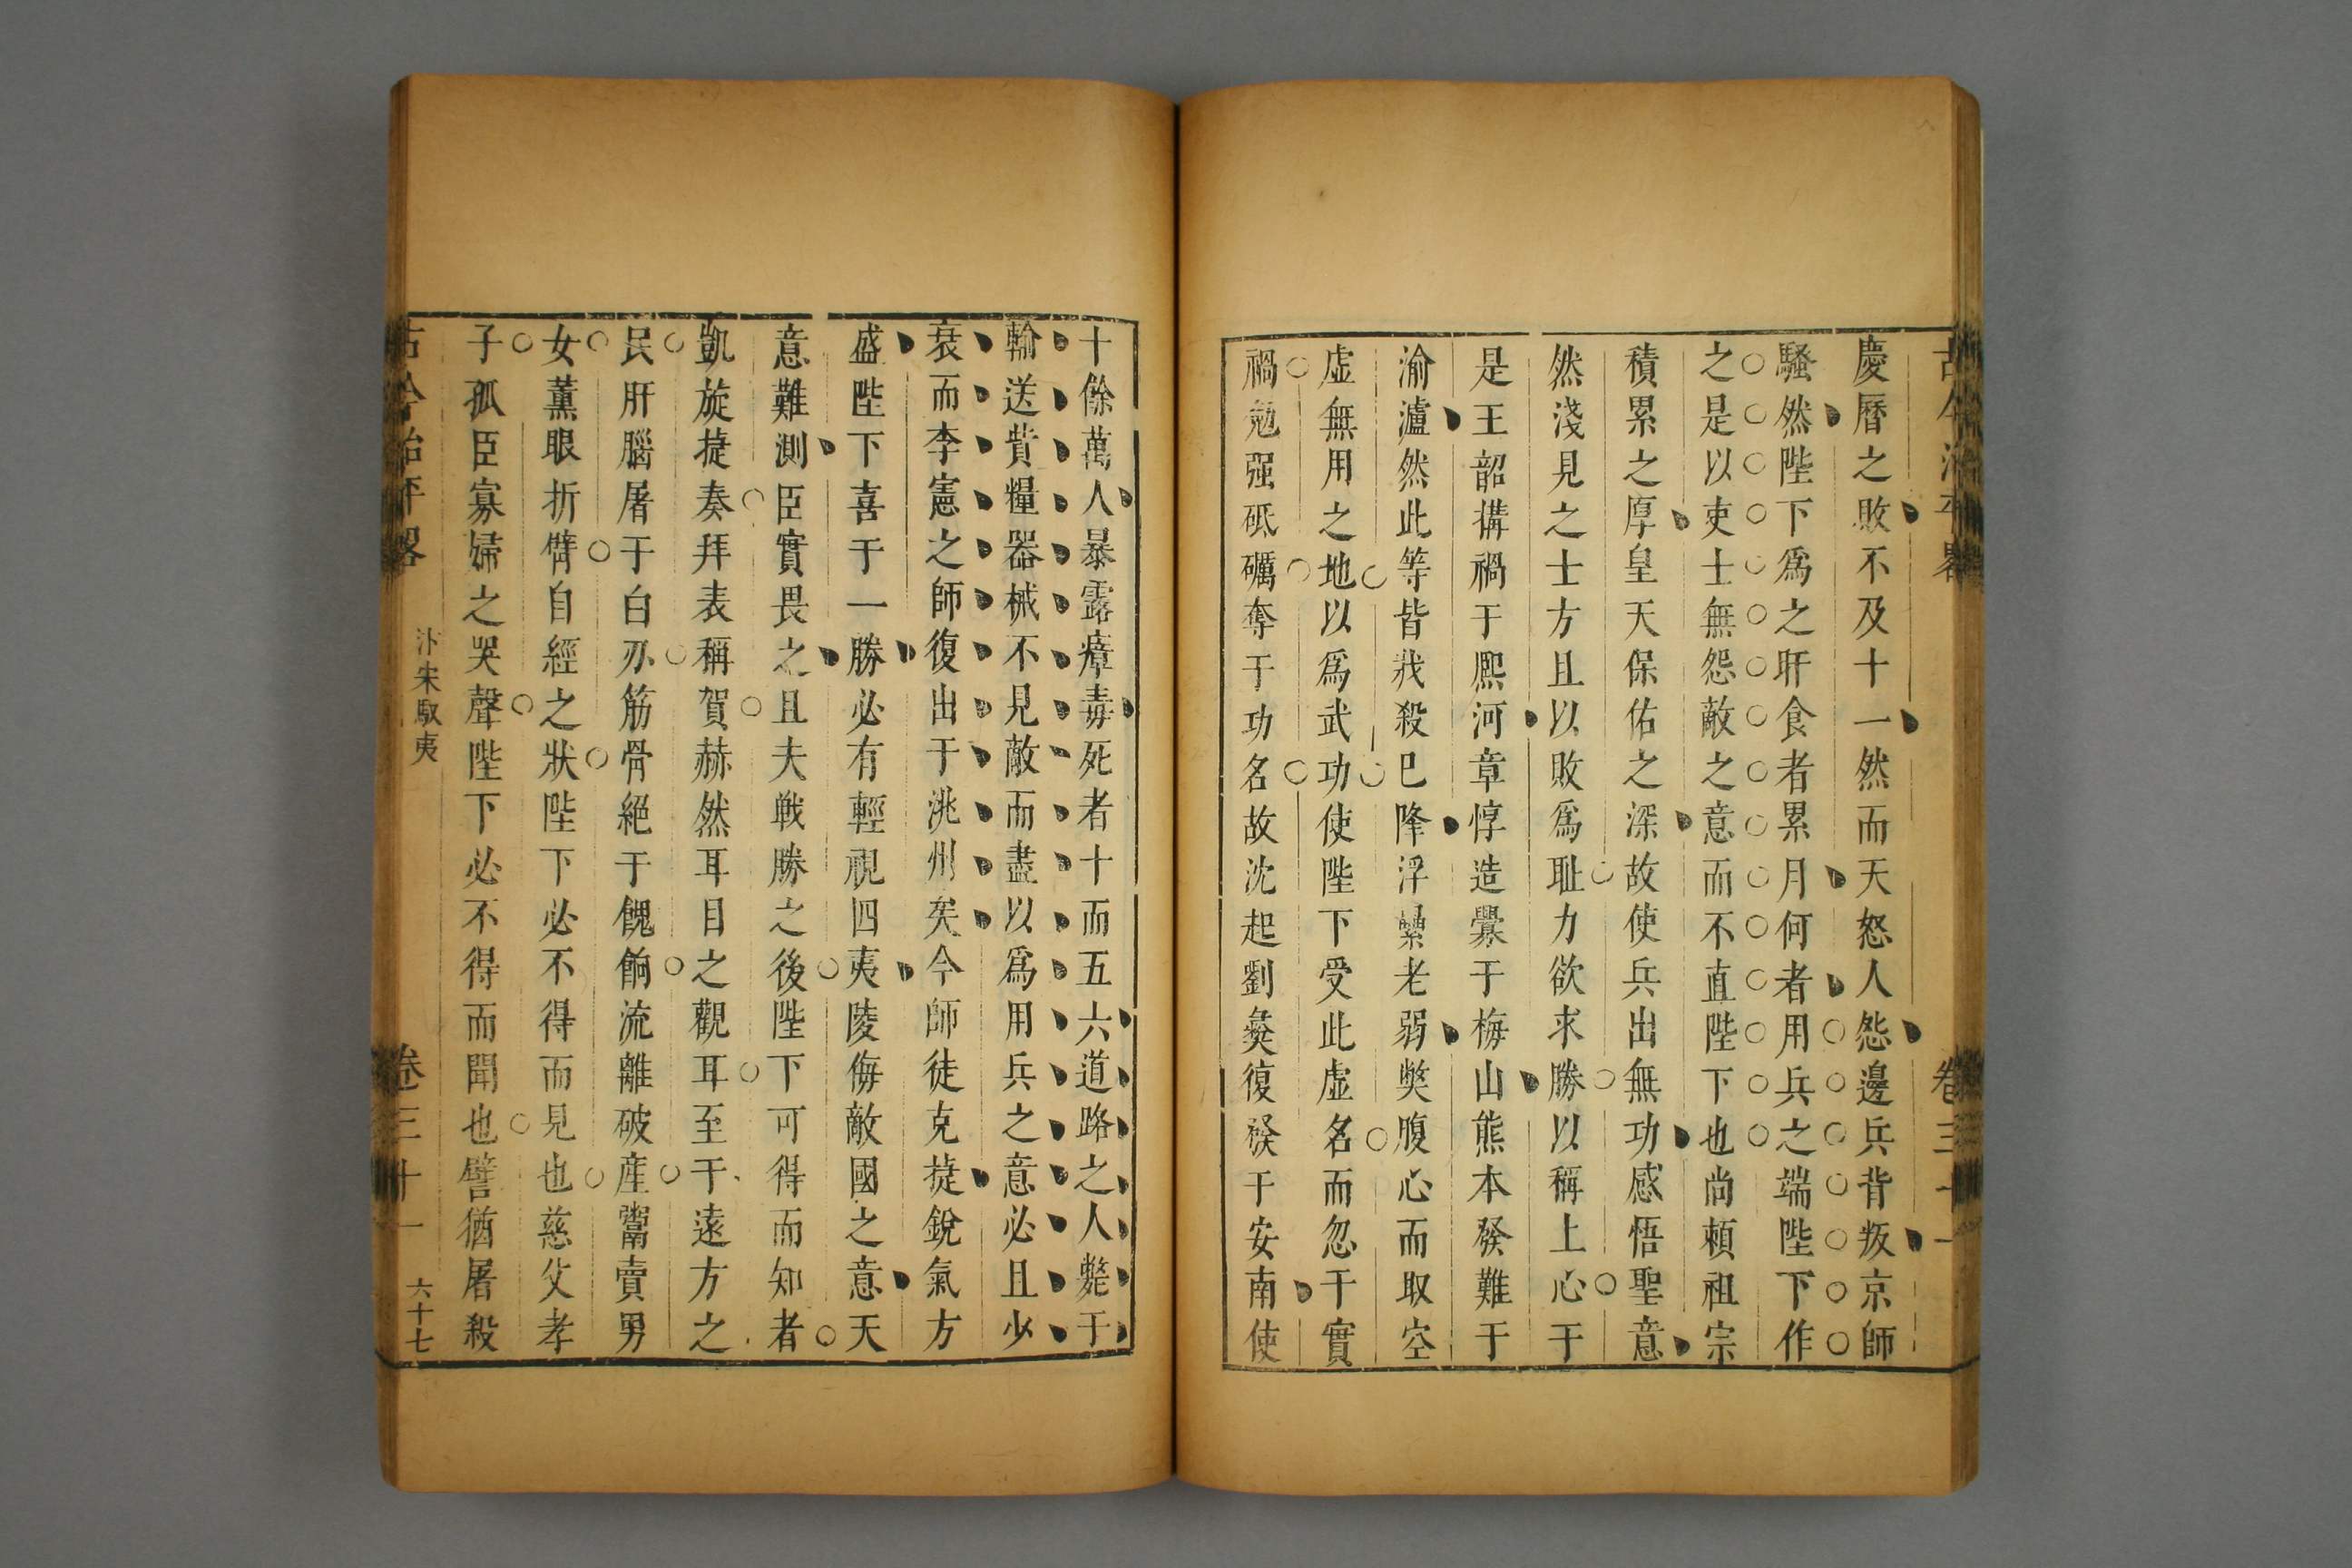 古今治平畧
卷三十一
慶曆之敗不及十一然而天怒人怨邊兵背叛京師
騷然陛下爲之旰食者累月何者用兵之端陛下作
之是以吏士無怨敵之意而不直陛下也尚頼祖宗
積累之厚皇天保佑之深故使兵出無功感悟聖意
然淺見之士方且以敗爲耻力欲求勝以稱上心于
是王韶搆禍于熈河章惇造釁于梅山熊本發難于
渝瀘然此等皆戕殺已降浮纍老弱獘腹心而取空
虛無用之地以爲武功使陛下受此虛名而忽于實
禍勉强砥礪奪于功名故沈起劉彝復發于安南使
十餘萬人暴露瘴毒死者十而五六道路之人斃于
輸送貲糧器械不見敵而盡以爲用兵之意必且少
衰而李憲之師復出于洮州矣今師徒克㨗銳氣方
盛陛下喜于一勝必有輕視四夷陵侮敵國之意天
意難測臣實畏之且夫戰勝之後陛下可得而知者
凱旋㨗奏拜表稱賀赫然耳目之觀耳至于逺方之
民肝腦屠于白刃筋骨絕于餽餉流離破産鬻賣男
女薰眼折臂自經之狀陛下必不得而見也慈父孝
子孤臣寡婦之哭聲陛下必不得而聞也譬猶屠殺
古今治平畧
汴朱馭夷
卷三十一
六十七